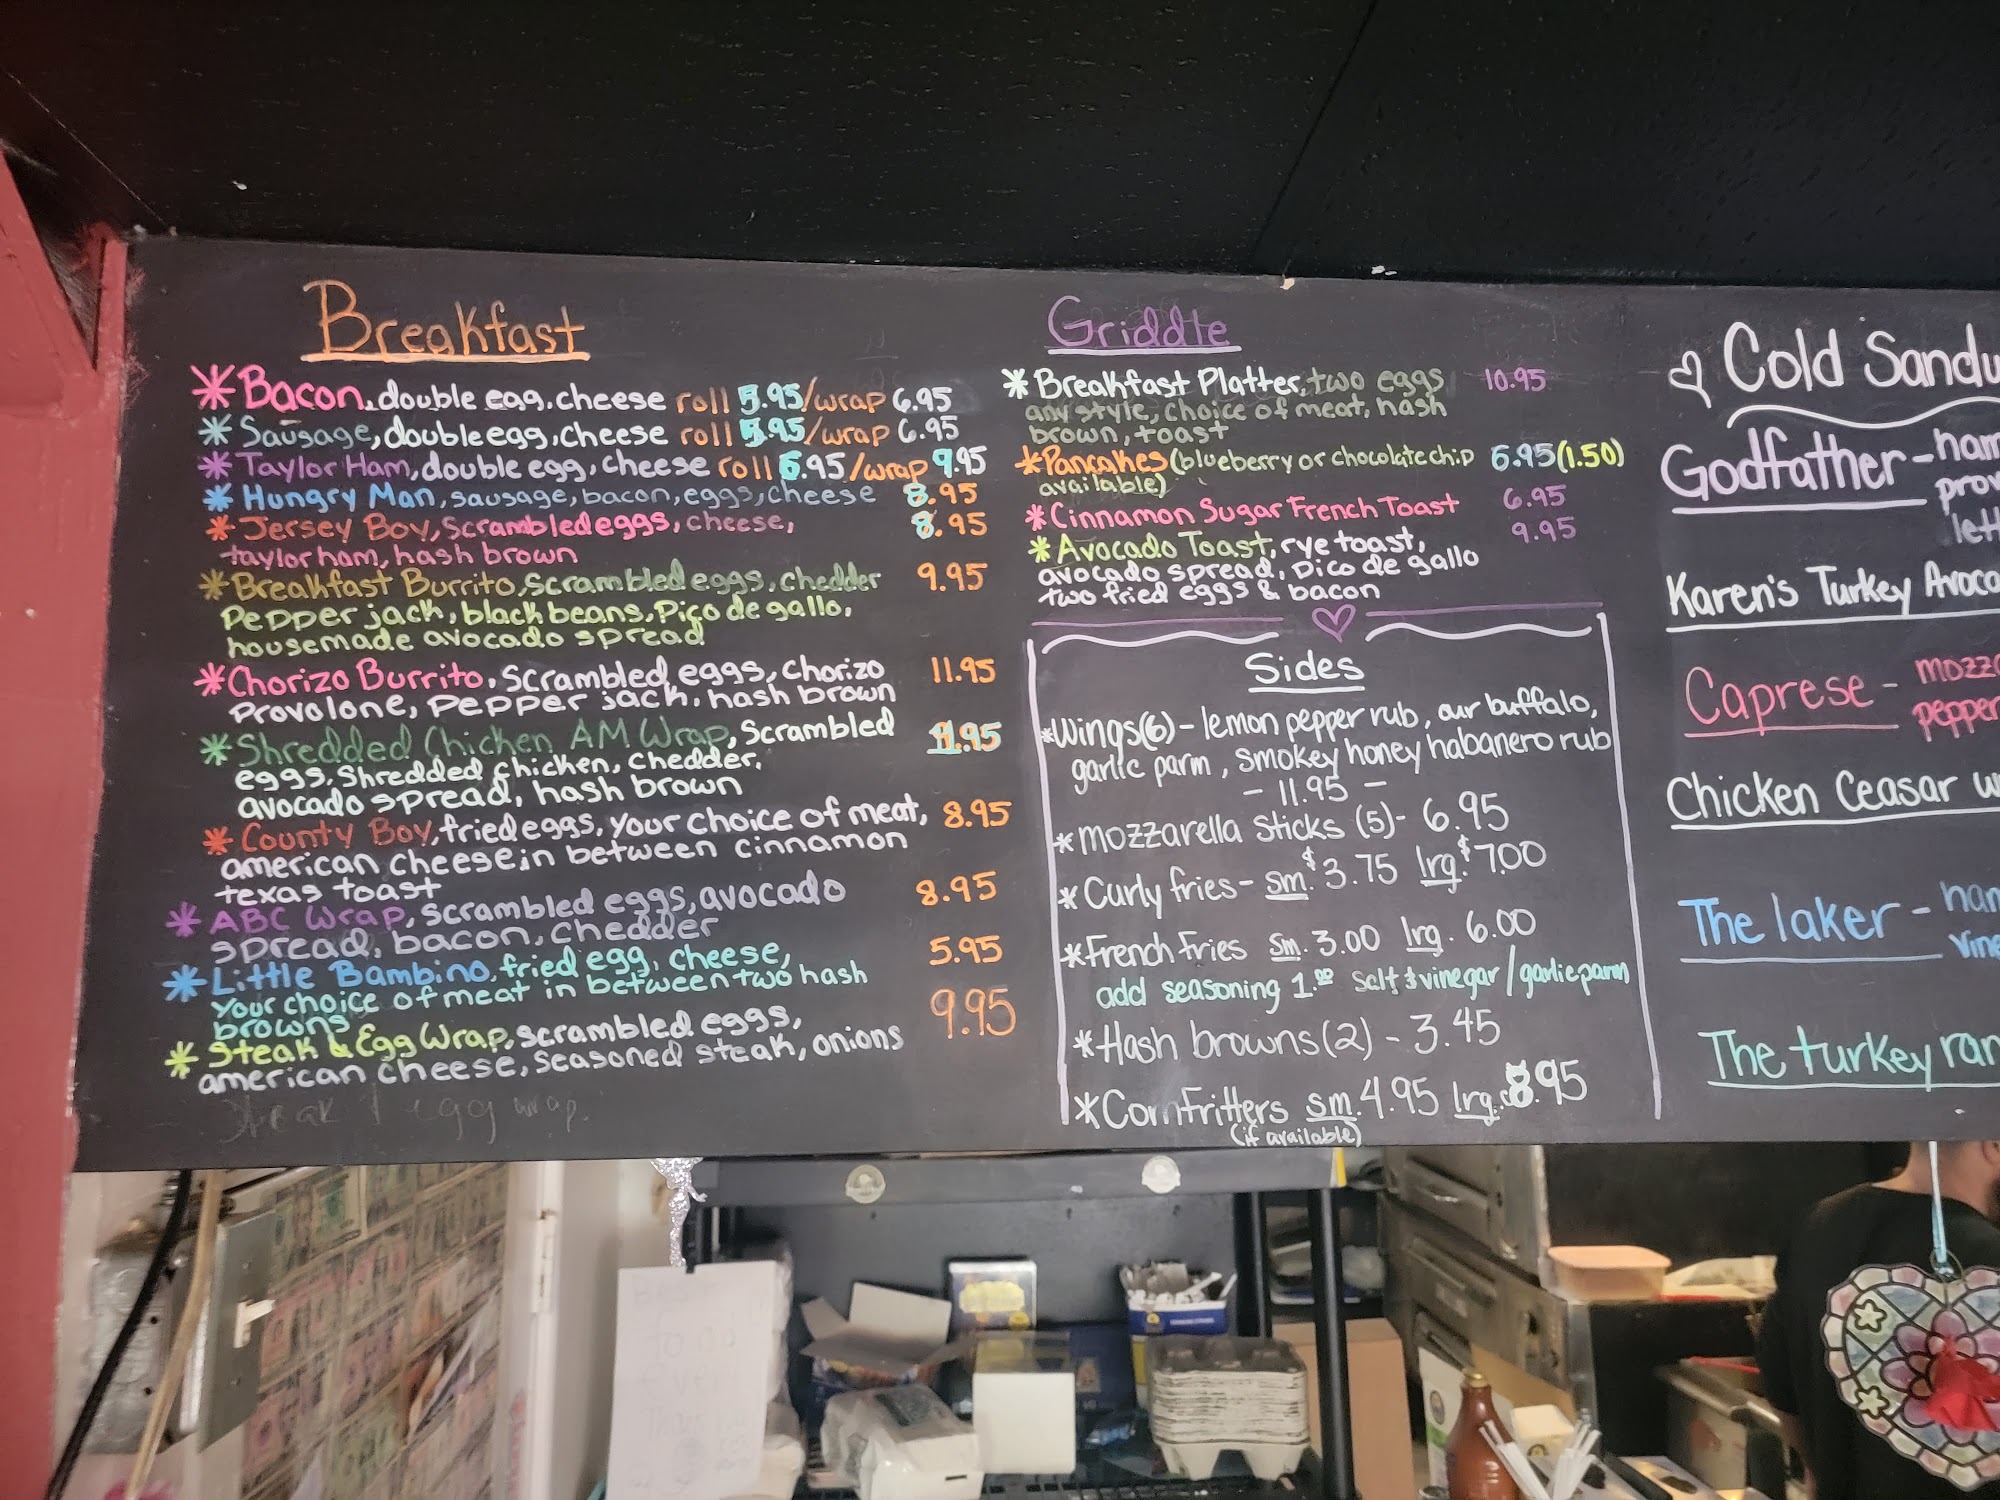 Breakfast
*Bacon, double egg, cheese roll 5.95/wrap 6.95
*Sausage, double egg, cheese roll 5.95/wrap 6.95
*Taylor Ham, double egg, cheese roll 6.95/wrap 9.95
*Hungry Man, sausage, bacon, eggs, cheese 8.95
*Jersey Boy, scrambled eggs, cheese, 8.95
taylor ham, hash brown
*Breakfast Burrito, scrambled eggs, chedder 9.95
Pepper jack, black beans, Pico de gallo,
housemade avocado spread
*Chorizo Burrito, scrambled eggs, chorizo 11.95
Provolone, pepper jack, hash brown
*Shredded Chicken AM Wrap, scrambled 11.95
eggs, shredded chicken, chedder,
avocado spread, hash brown
*County Boy, fried eggs, your choice of meat, 8.95
american cheese in between cinnamon
texas toast
*ABC Wrap, scrambled eggs, avocado 8.95
spread, bacon, chedder
*Little Bambino, fried egg, cheese, 5.95
your choice of meat in between two hash
browns
*Steak & Egg Wrap, scrambled eggs, 9.95
american cheese, seasoned steak, onions
Steak & egg wrap.
Griddle
*Breakfast Platter, two eggs 10.95
any style, choice of meat, hash
brown, toast
*Pancakes (blueberry or chocolate chip 6.95 (1.50)
available)
*Cinnamon Sugar French Toast 6.95
*Avocado Toast, rye toast, 9.95
avocado spread, pico de gallo
two fried eggs & bacon
Sides
*Wings (6) - lemon pepper rub, our buffalo,
garlic parm, smokey honey habanero rub
- 11.95 -
*Mozzarella Sticks (5) - 6.95
*Curly fries - sm. $3.75 lrg. $7.00
*French Fries sm. 3.00 lrg. 6.00
add seasoning 1.00 salt & vinegar / garlic parm
*Hash browns (2) - 3.45
*Corn Fritters sm. 4.95 lrg. 8.95
(if available)
Cold Sandw
Godfather - ham
prov
lett
Karen's Turkey Avoca
Caprese - mozza
pepper
Chicken Ceasar w
The laker - ham
vine
The turkey ran